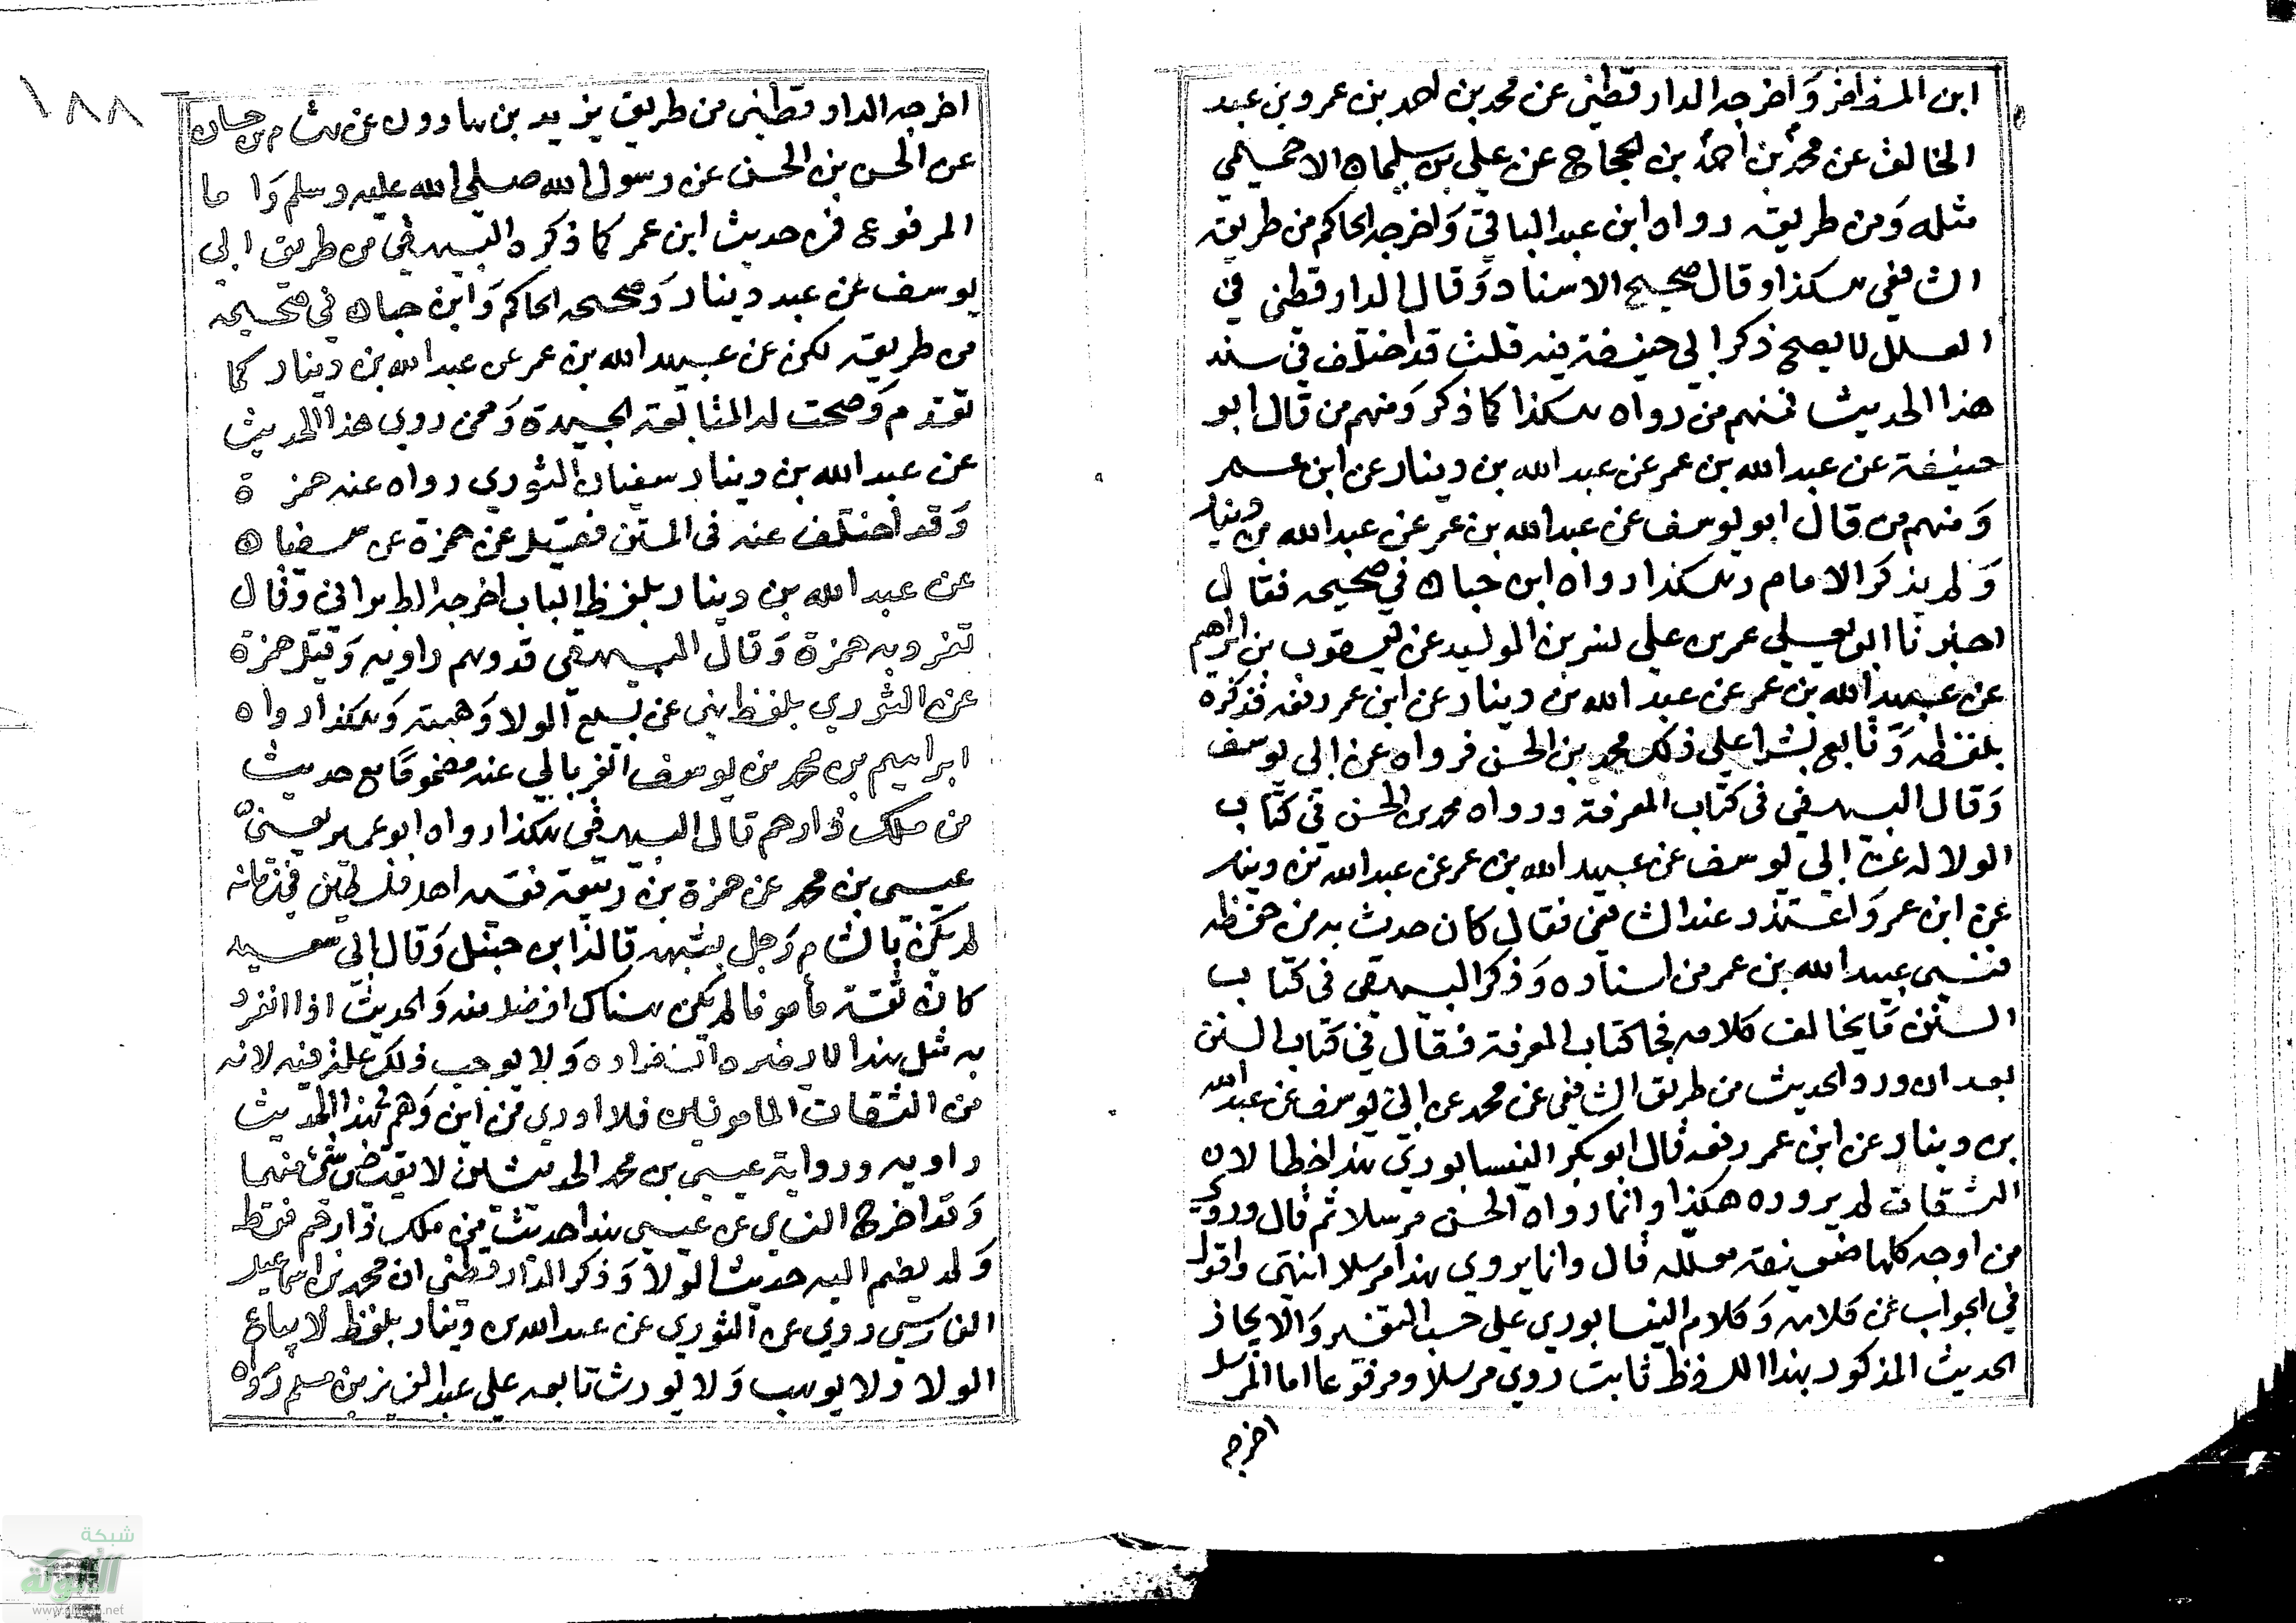 ابن المظفر وَاخرجه الدارقطني عن محمد بن احمد بن عمرو بن عبد
الخالق عن محمد بن احمد بن الحجاج عن علي بن سليمان الاخميمي
مثله وَمن طريقه رواه ابن عبد الباقي وَاخرجه الحاكم من طريق
الشافعي هكذا وقال صحيح الاسناد وَقال الدارقطني في
العلل لا يصح ذكر ابي حنيفة فيه قلت قد اختلف في سند
هذا الحديث فمنهم من رواه هكذا كما ذكر وَمنهم من قال ابو
حنيفة عن عبد الله بن عمر عن عبد الله بن دينار عن ابن عمر
وَمنهم من قال ابو يوسف عن عبد الله بن عمر عن عبد الله بن دينار
وَلم يذكر الامام وهكذا رواه ابن حبان في صحيحه فقال
اخبرنا ابو يعلي عمر بن علي بشر بن الوليد عن يعقوب بن ابراهيم
عن عبيد الله بن عمر عن عبد الله بن دينار عن ابن عمر رفعه فذكره
بلفظه وَتابع بشرا علي ذلك محمد بن الحسن فرواه عن ابي يوسف
وَقال البيهقي في كتاب المعرفة ورواه محمد بن الحسن في كتاب
الولا له عن ابي يوسف عن عبيد الله بن عمر عن عبد الله بن دينار
عن ابن عمر وَاعتذر عند الشافعي فقال كان حدث به من حفظه
فنسي عبيد الله بن عمر من اسناده وَذكر البيهقي في كتاب
السنن مَا يخالف كلامه في كتاب المعرفة فقال في كتاب السنن
بعد ان ورد الحديث من طريق الشافعي عن محمد عن ابي يوسف عن عبد الله
بن دينار عن ابن عمر رفعه قال ابو بكر النيسابوري هذا خطا لان
الثقات لم يرووه هكذا وانما رواه الحسن مرسلا ثم قال وروي
من اوجه كلها ضعيفة معلله قال وانما يروي هذا مرسلا انتهي واقول
في الجواب عن كلامه وَكلام النيسابوري علي حسب التقدير وَالايجاز
الحديث المذكور بهذا اللفظ ثابت روي مرسلا ومرفوعا اما المرسل
اخرجه
١٨٨
اخرجه الدارقطني من طريق يزيد بن هارون عن هشام بن حسان
عن الحسن بن الحسن عن رسول الله صلي الله عليه وسلم وَاما
المرفوع فمن حديث ابن عمر كما ذكره البيهقي من طريق ابي
يوسف عن عبد دينار وَصححه الحاكم وَابن حبان في صحيحه
من طريقه لكن عن عبيد الله بن عمر عن عبد الله بن دينار كما
تقدم وَصحت له المتابعة الجيدة وَممن روي هذا الحديث
عن عبد الله بن دينار سفيان الثوري رواه عنه حمزة
وَقد اختلف عنه في المتن فقيل عن حمزة عن سفيان
عن عبد الله بن دينار بلفظ الباب اخرجه الطبراني وَقال
تفرد به حمزة وَقال البيهقي قد وهم راويه وَقيل حمزة
عن الثوري بلفظ نهي عن بيع الولا وَهبته وَهكذا رواه
ابراهيم بن محمد بن يوسف الفريابي عنه مضمومًا مع حديث
من ملك ذا رحم قال البيهقي هكذا رواه ابو عمير يعني
عيسي بن محمد عن حمزة بن ربيعة فقيه اهل فلسطين في زمانه
لم يكن بالشام رَجل يشبهه قاله ابن حنبل وَقال ابي سعيد
كان ثقة مأمونا لم يكن هناك افضل منه وَالحديث اذا انفرد
به مثل هذا لا يضره انفراده وَلا يوجب ذلك علة فيه لانه
من الثقات المامونين فلا ادري من اين وَهم بهذا الحديث
راويه ورواية عيسي بن محمد الحديثين لا يقتضي شئ منهما
وَقد اخرج النساي عن عيسي هذا حديث من ملك ذا رحم فقط
وَلم يضم اليه حديث الولا وَذكر الدارقطني ان محمد بن اسماعيل
الفارسي روي عن الثوري عن عبد الله بن دينار بلفظ لا يباع
الولا وَلا يوهب وَلا يورث تابعه علي عبد العزيز بن مسلم رَواه
شبكة
الألوكة
www.alukah.net